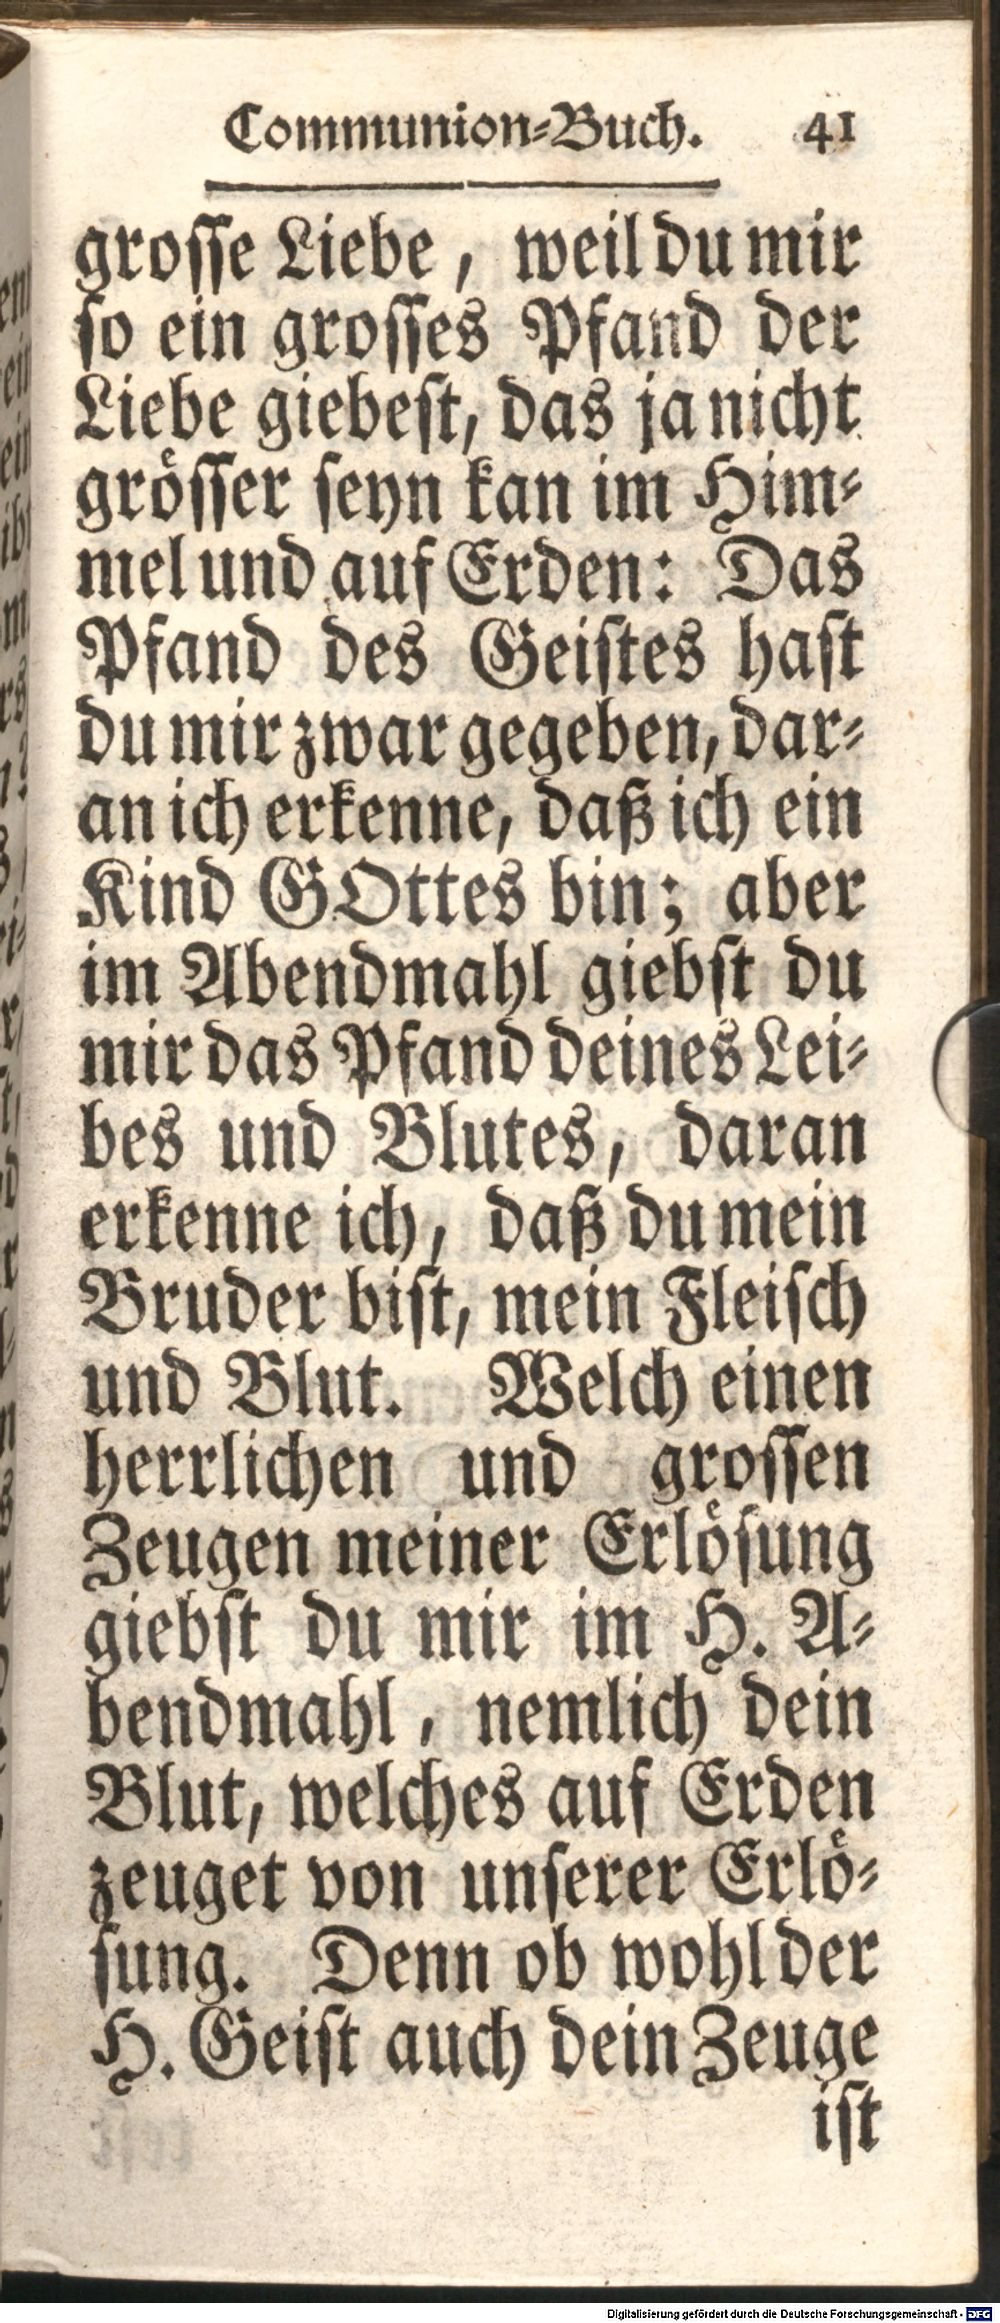 Communion-Buch. 41
grosse Liebe, weil du mir
so ein grosses Pfand der
Liebe giebest, das ja nicht
grösser seyn kan im Him-
mel und auf Erden: Das
Pfand des Geistes hast
du mir zwar gegeben, dar-
an ich erkenne, daß ich ein
Kind GOttes bin; aber
im Abendmahl giebst du
mir das Pfand deines Lei-
bes und Blutes, daran
erkenne ich, daß du mein
Bruder bist, mein Fleisch
und Blut. Welch einen
herrlichen und grossen
Zeugen meiner Erlösung
giebst du mir im H. A-
bendmahl, nemlich dein
Blut, welches auf Erden
zeuget von unserer Erlö-
sung. Denn ob wohl der
H. Geist auch dein Zeuge
ist
Digitalisierung gefördert durch die Deutsche Forschungsgemeinschaft - DFG